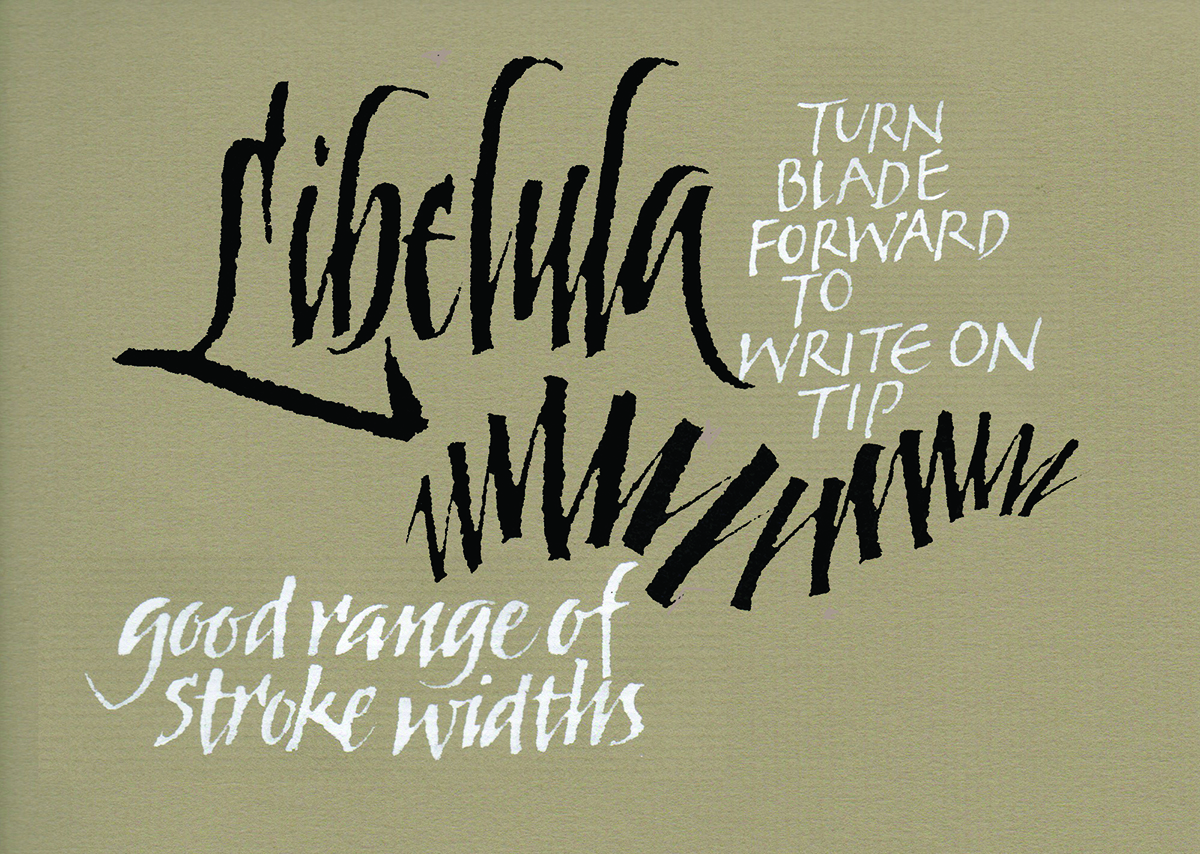 Libelula
TURN
BLADE
FORWARD
TO
WRITE ON
TIP
good range of
stroke widths